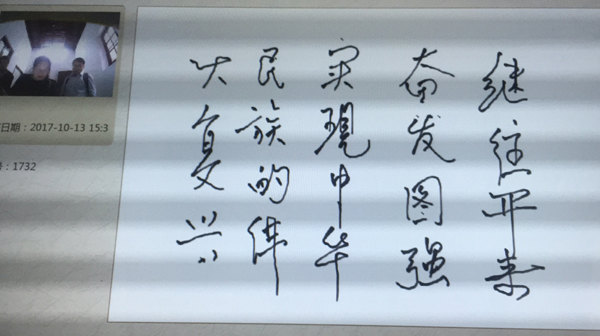 继往开来
奋发图强
实现中华
民族的伟
大复兴
日期：2017-10-13 15:3
号：1732